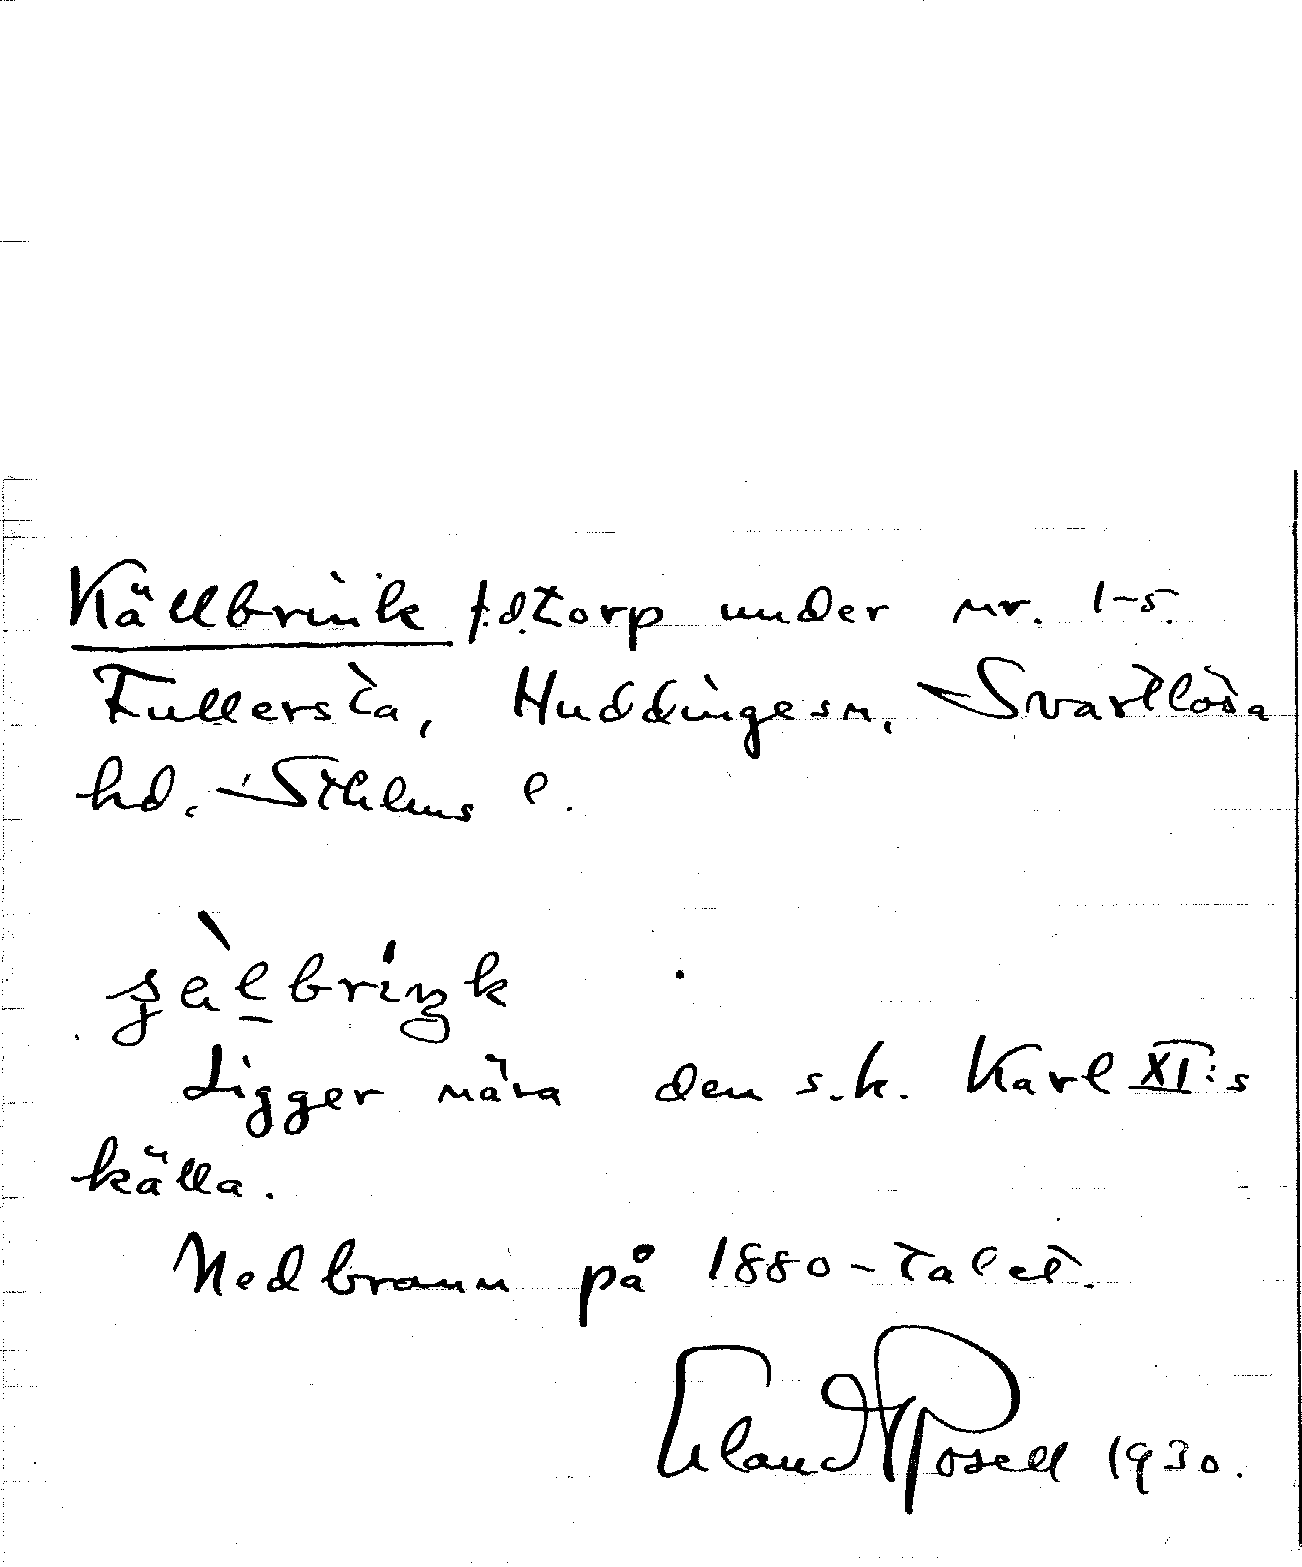 Källbrink f.d. torp under nr. 1-5.
Fullersta, Huddinge sn, Svartlösa
hd. Sthlms l.
ʂèl̲briŋk
Ligger nära den s.k. Karl XI:s
källa.
Nedbrann på 1880-talet.
Erland Rosell 1930.